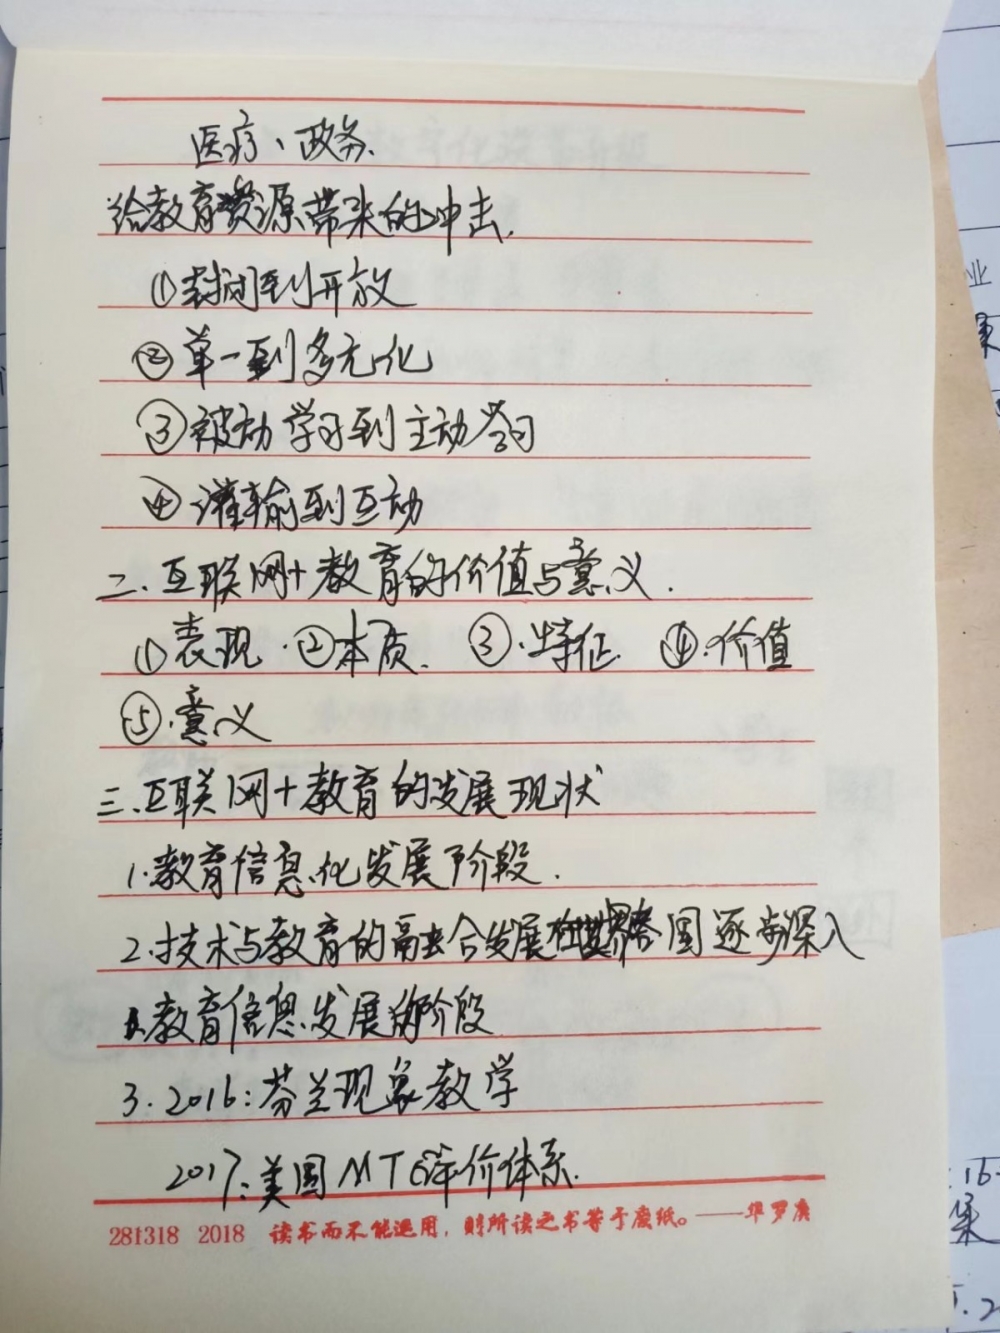 医疗、政务.
给教育资源带来的冲击.
①封闭到开放
②单一到多元化
③被动学习到主动学习
④灌输到互动
二.互联网+教育的价值与意义.
①表现.②本质.③.特征.④.价值
⑤.意义
三.互联网+教育的发展现状
1.教育信息化发展阶段.
2.技术与教育的融合发展在世界各国逐步深入
教育信息发展的阶段
3.2016:芬兰现象教学
2017:美国MTC评价体系.
281318 2018 读书而不能运用,则所读之书等于废纸。——华罗庚
业
16-